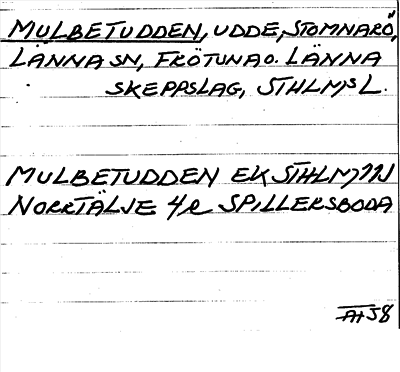 MULBETUDDEN, UDDE, STOMNARÖ,
LÄNNA SN, FRÖTUNA O. LÄNNA
SKEPPSLAG, STHLMS L.
MULBETUDDEN EK STHLM 11J
NORRTÄLJE 4e SPILLERSBODA
58